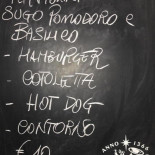 SUGO POMODORO E
BASILICO
- HAMBURGER
- COTOLETTA
- HOT DOG
- CONTORNO
€ 10
ANNO 1366